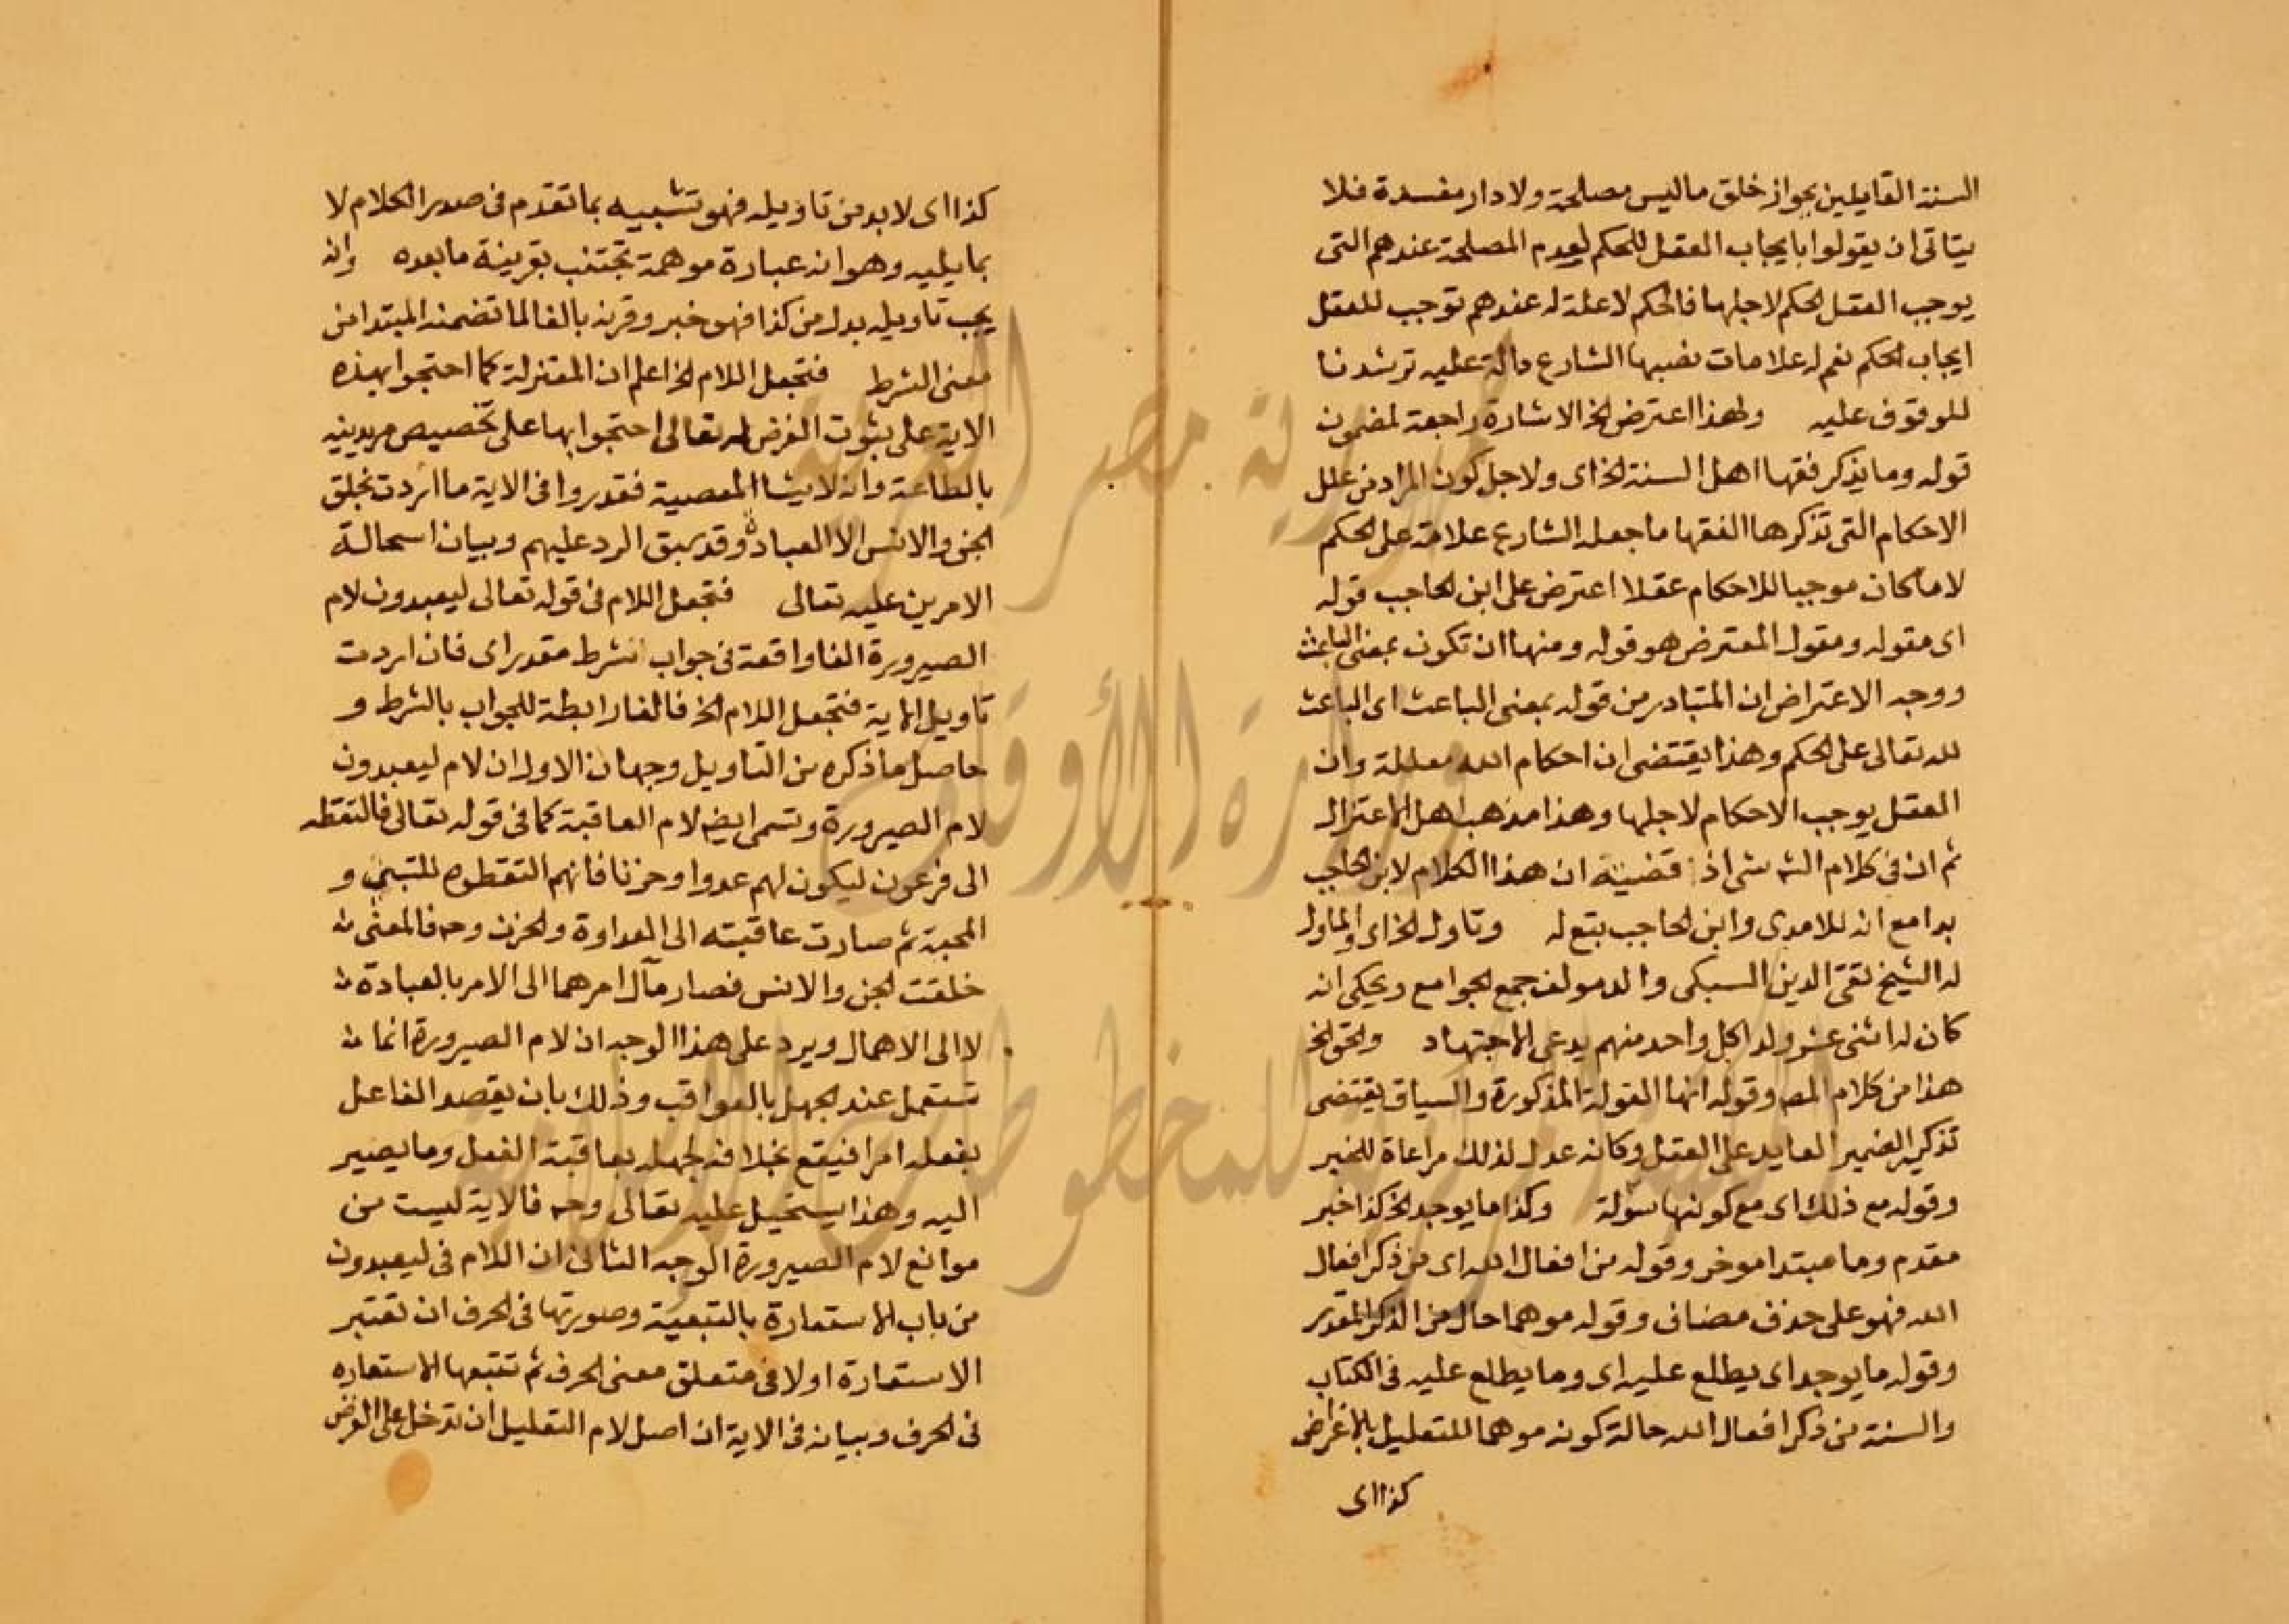 السنة القايلين بجواز خلق ما ليس مصلحة ولا دار مفسدة فلا
يتاتى ان يقولوا بايجاب العقل للحكم لعدم المصلحة عندهم التى
يوجب العقل الحكم لاجلها فالحكم لا علة له عندهم توجب للعقل
ايجاب الحكم نعم له علامات نصبها الشارع دالة عليه ترشدنا
للوقوف عليه ولهذا اعترض الخ الاشارة راجعة لمضمون
قوله وما يذكر فقها اهل السنة الخ اى ولاجل كون المراد من علل
الاحكام التى تذكرها الفقها ما جعله الشارع علامة على الحكم
لا ما كان موجبا للاحكام عقلا اعترض على ابن الحاجب قوله
اى مقوله ومقول المعترض هو قوله ومنها ان تكون بمعنى الباعث
ووجه الاعتراض ان المتبادر من قوله بمعنى الباعث اى الباعث
لله تعالى على الحكم وهذا يقتضى ان احكام الله معللة وان
العقل يوجب الاحكام لاجلها وهذا مذهب اهل الاعتزال
ثم ان فى كلام الشه شى اذ قضيته ان هذا الكلام لابن الحاجب
بدا مع انه للامدى وابن الحاجب بتع له وتاول الخ اى والماول
له الشيخ تقى الدين السبكى والد مولف جمع الجوامع ويحكى انه
كان له اثنى عشر ولدا كل واحد منهم يدعى الاجتهاد والحق الخ
هذا من كلام المصه وقوله انها المقولة المذكورة والسياق يقتضى
تذكير الضمير العايد على العقل وكانه عدل لذلك مراعاة للخبر
وقوله مع ذلك اى مع كونها سولة وكذا ما يوجد الخ كذا خبر
مقدم وما مبتدا موخر وقوله من افعال الله اى من ذكر افعال
الله فهو على حذف مضاف وقوله موهما حال من الذكر المقدر
وقوله ما يوجد اى يطلع عليه اى وما يطلع عليه فى الكتاب
والسنة من ذكر افعال الله حالة كونه موهما للتعليل بالاغراض
كذا اى
كذا اى لا بد من تاويله فهو تشبيه بما تقدم فى صدر الكلام لا
بما يليه وهو انه عبارة موهمة تجتنب بقرينة ما بعده وانه
يجب تاويله بدل من كذا فهو خبر وقرنه بالفا لما تضمنه المبتدا من
معنى الشرط فتجعل اللام الخ اعلم ان المعتزلة كما احتجوا بهذه
الاية على ثبوت الغرض له تعالى احتجوا بها على تخصيص مريدينه
بالطاعة وانه لا يشا المعصية فقدروا فى الاية ما اردت بخلق
الجن والانس الا العبادة وقد سبق الرد عليهم وبيان اسحالة
الامرين عليه تعالى فتجعل اللام فى قوله تعالى ليعبدون لام
الصيرورة الفا واقعة فى جواب شرط مقدر اى فان اردت
تاويل الاية فتجعل اللام الخ فالفا رابطة للجواب بالشرط و
حاصل ما ذكره من التاويل وجهان الاول ان لام ليعبدون
لام الصيرورة وتسمى ايضا لام العاقبة كما فى قوله تعالى فالتقطه
الى فرعون ليكون لهم عدوا وحزنا فانهم التقطوه للتبنى و
المحبة ثم صارت عاقبته الى العداوة والحزن وحه فالمعنى
خلقت الجن والانس فصار مآل امرهما الى الامر بالعبادة
لا الى الاهمال ويرد على هذا الوجه ان لام الصيرورة انما
تستعمل عند الجهل بالعواقب وذلك بان يقصد الفاعل
بفعله امرا فيقع بخلافه لجهله بعاقبة الفعل وما يصير
اليه وهذا يستحيل عليه تعالى وحه فالاية ليست من
موانع لام الصيرورة الوجه الثانى ان اللام فى ليعبدون
من باب الاستعارة بالتبعية وصورتها فى الحرف ان تعتبر
الاستعارة اولا فى متعلق معنى الحرف ثم تتبعها الاستعاره
فى الحرف وبيانه فى الاية ان اصل لام التعليل ان تدخل على الغرض